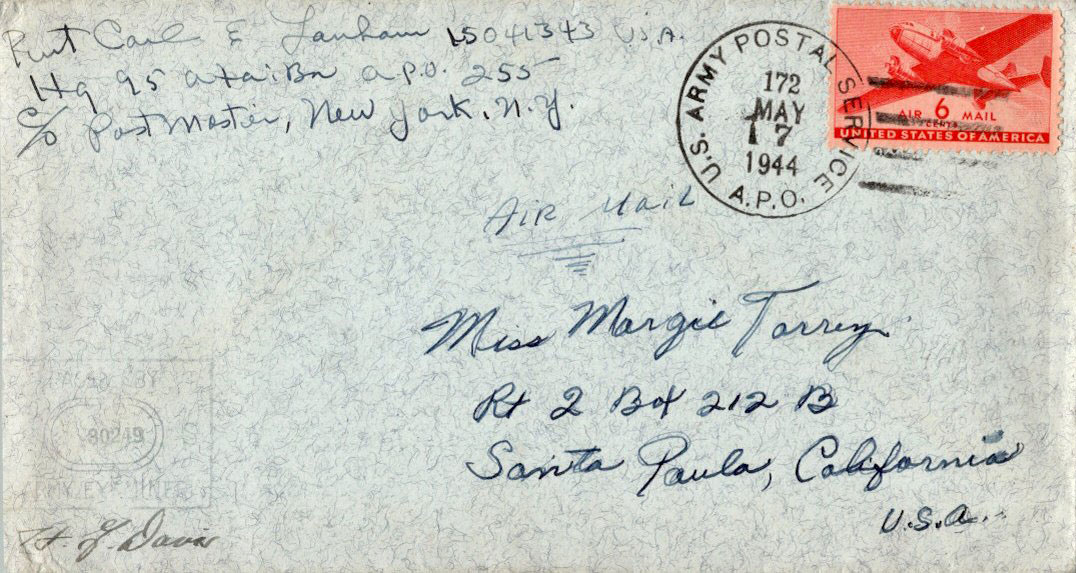 Pvt Carl E Lanham 15041343 U.S.A.
Hq 95 A.P.O. 255
c/o PostMaster, New York, N.Y.
U.S. ARMY POSTAL SERVICE
172
MAY
17
1944
A.P.O.
AIR 6 MAIL
CENTS
UNITED STATES OF AMERICA
Air Mail
Miss Margie Torrey
Rt 2 Box 212 B
Santa Paula, California
U.S.A.
PASSED BY
ARMY EXAMINER
Davis